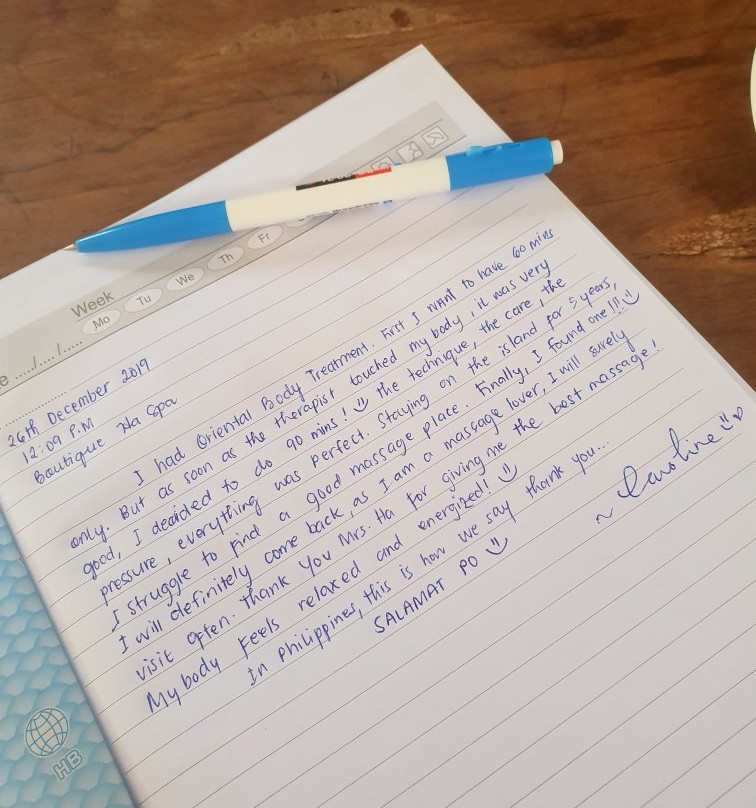 Week
Mo Tu We Th Fr
e ..../..../.....
26th December 2019
12:09 P.M
Boutique Na Spa
I had Oriental Body Treatment. First I want to have 60 mins
only. But as soon as the therapist touched my body, it was very
good, I decided to do 90 mins! the technique, the care, the
pressure, everything was perfect. Staying on the island for 5 years,
I struggle to find a good massage place. Finally, I found one!!!
I will definitely come back, as I am a massage lover, I will surely
visit often. Thank you Mrs. Ha for giving me the best massage!
My body feels relaxed and energized!
In Philippines, this is how we say thank you...
SALAMAT PO
~ Caroline
HB